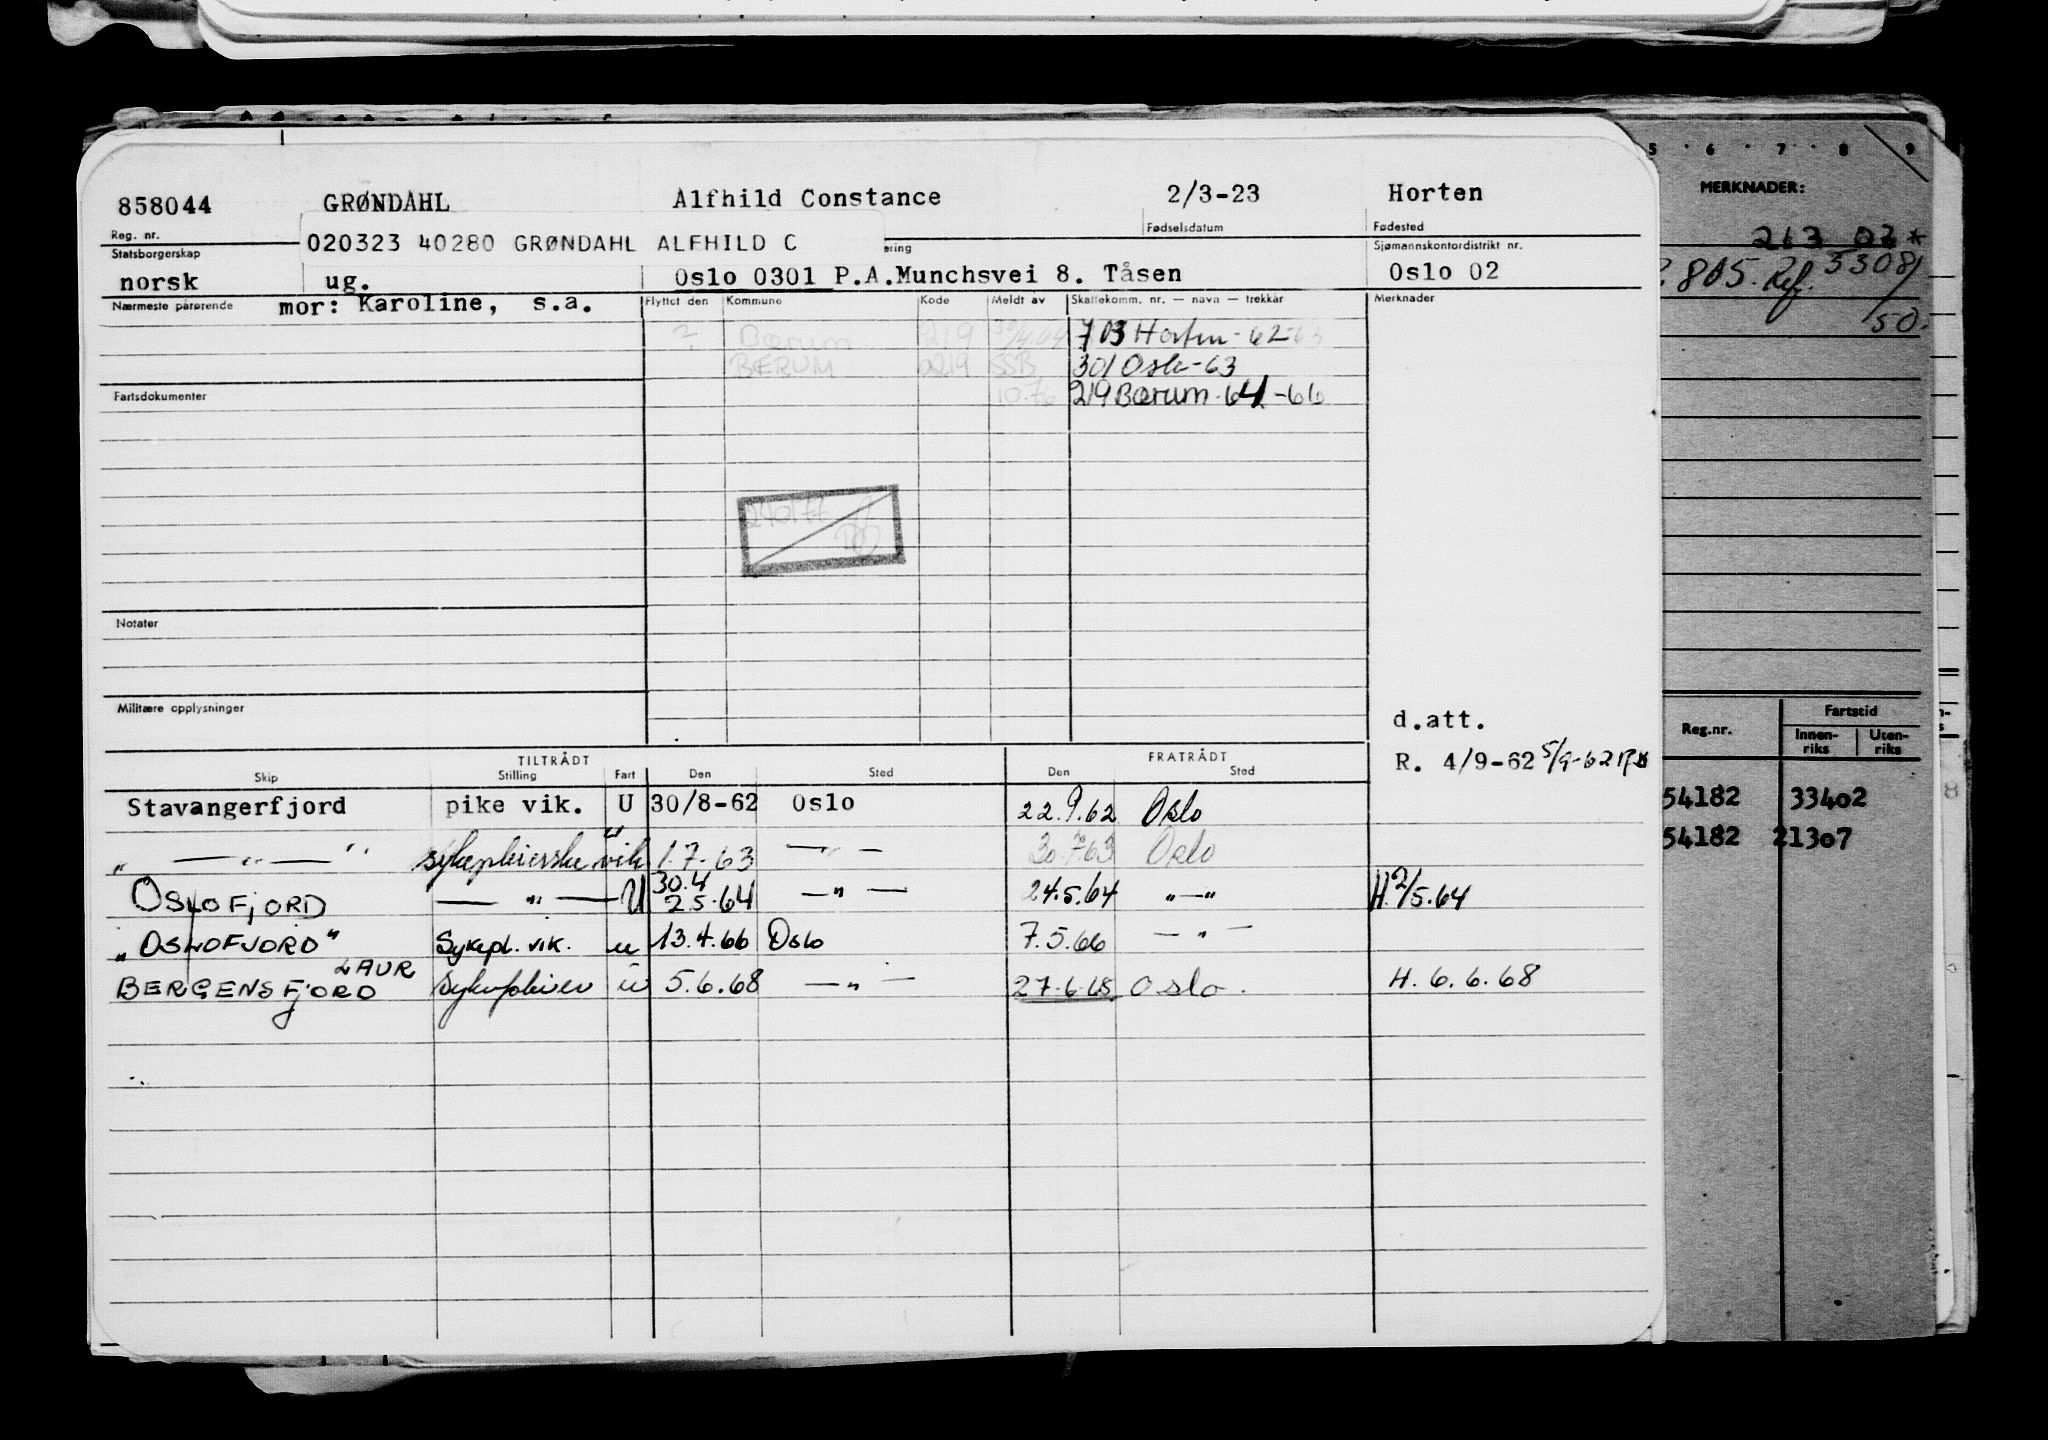 5 · 6 · 7 · 8 9
MERKNADER:
858044 GRØNDAHL Alfhild Constance 2/3-23 Horten
Reg. nr. Fødselsdatum Fødested
213 02*
020323 40280 GRØNDAHL ALFHILD C
Statsborgerskap ering Sjømannskontordistrikt nr.
norsk ug. Oslo 0301 P.A.Munchsvei 8. Tåsen Oslo 02
805. Ref. 53081
/50.
Nærmeste pårørende mor: Karoline, s.a. Flyttet den Kommune Kode Meldt av Skattekomm. nr. — navn — trekkår Merknader
? Bærum 219 703 Horten-62-63
BÆRUM 0219 SSB 301 Oslo-63
Fartsdokumenter 10.76 219 Bærum-64-66
240177
Notater
Militære opplysninger
d.att.
Reg.nr. Fartstid
Innen-riks Uten-riks
TILTRÅDT FRATRÅDT
R. 4/9-62 5/9-62
Skip Stilling Fart Den Sted Den Sted
Stavangerfjord pike vik. U 30/8-62 Oslo 22.9.62 Oslo
54182 33402
„ — „ — " sykepleierske vik " 1.7-63 — „ — 30.7.63 Oslo
54182 21307
OSLOFJORD — „ — U 30.4 2.5-64 — " — 24.5.64 "—" H.2/5.64
„OSLOFJORD" Sykepl. vik. u 13.4.66 Oslo 7.5.66 — " —
LAUR
BERGENSFJORD Sykepleier u 5.6.68 — „ — 27.6.68 Oslo. H. 6.6.68